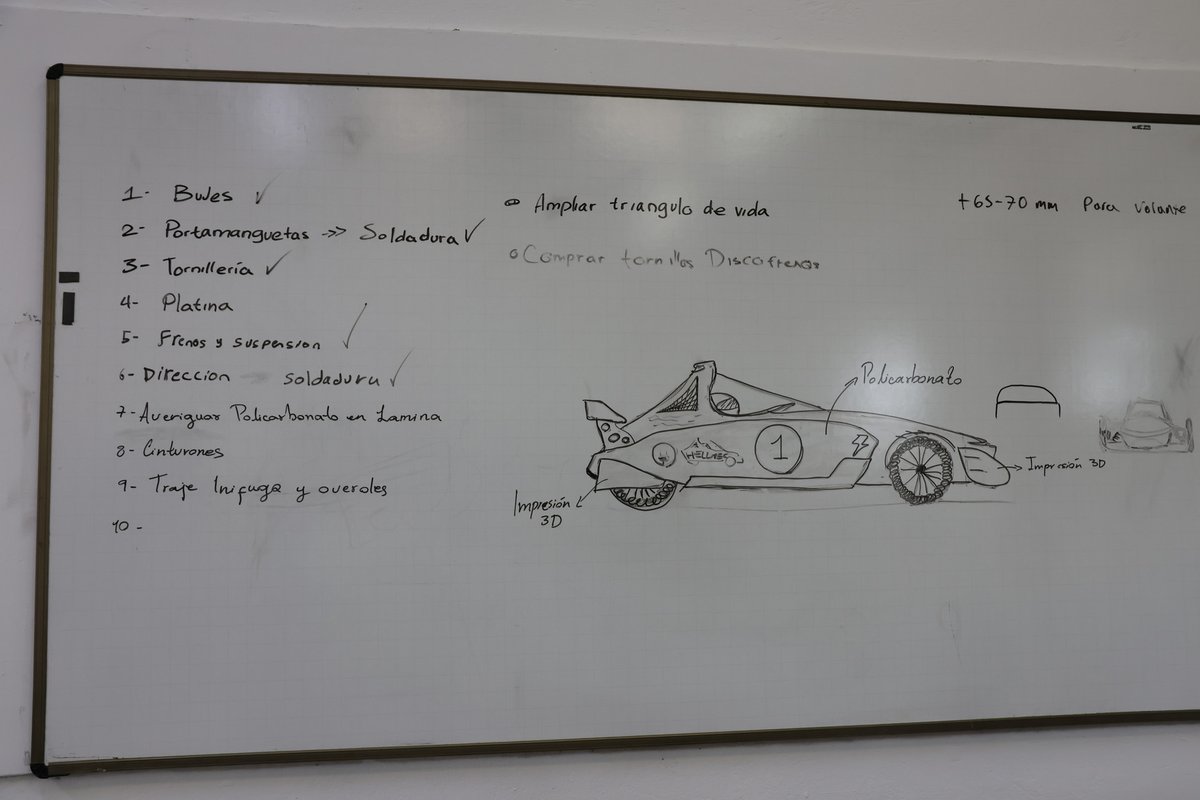 1- Bujes ✓
2- Portamanguetas ->> Soldadura ✓
3- Tornillería ✓
4- Platina
5- Frenos y suspension ✓
6- Direccion soldadura ✓
7- Averiguar Policarbonato en Lamina
8- Cinturones
9- Traje Inifuga y overoles
10-
Ampliar triangulo de vida
Comprar tornillos Discofrenos
+65-70 mm Para volante
Policarbonato
HELLMES
1
Impresión 3D
Impresión
3D